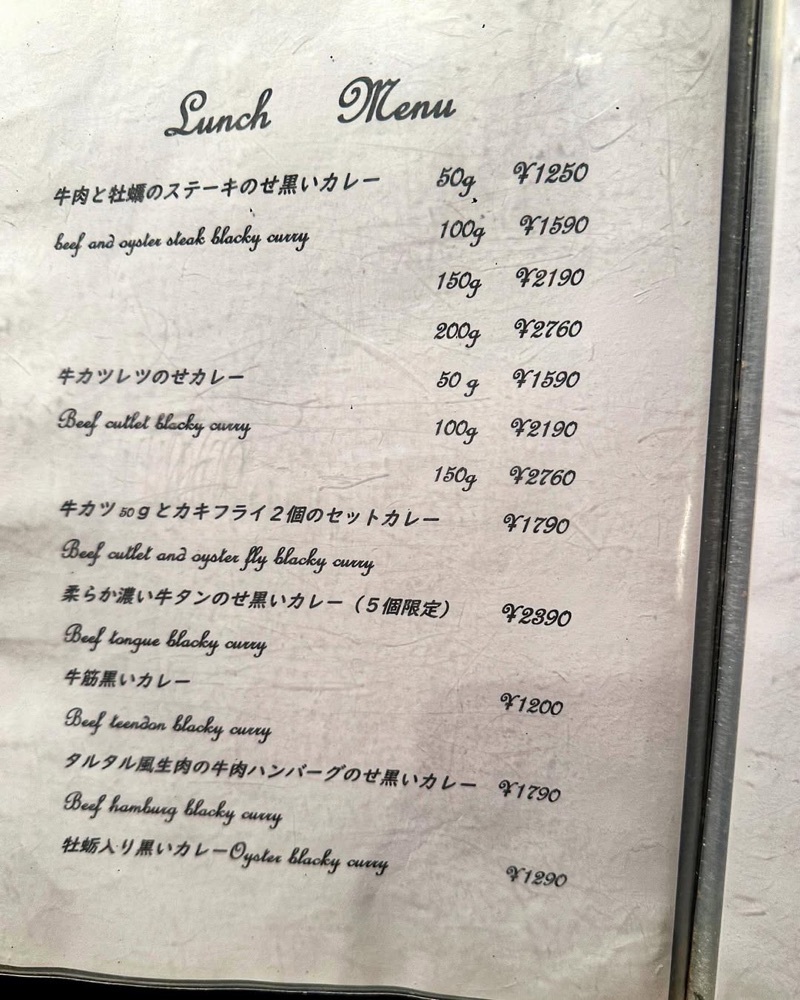 Lunch Menu
牛肉と牡蠣のステーキのせ黒いカレー 50g ¥1250
beef and oyster steak blacky curry 100g ¥1590
150g ¥2190
200g ¥2760
牛カツレツのせカレー 50 g ¥1590
Beef cutlet blacky curry 100g ¥2190
150g ¥2760
牛カツ50gとカキフライ2個のセットカレー ¥1790
Beef cutlet and oyster fly blacky curry
柔らか濃い牛タンのせ黒いカレー（5個限定） ¥2390
Beef tongue blacky curry
牛筋黒いカレー ¥1200
Beef teendon blacky curry
タルタル風生肉の牛肉ハンバーグのせ黒いカレー ¥1790
Beef hamburg blacky curry
牡蛎入り黒いカレーOyster blacky curry ¥1290